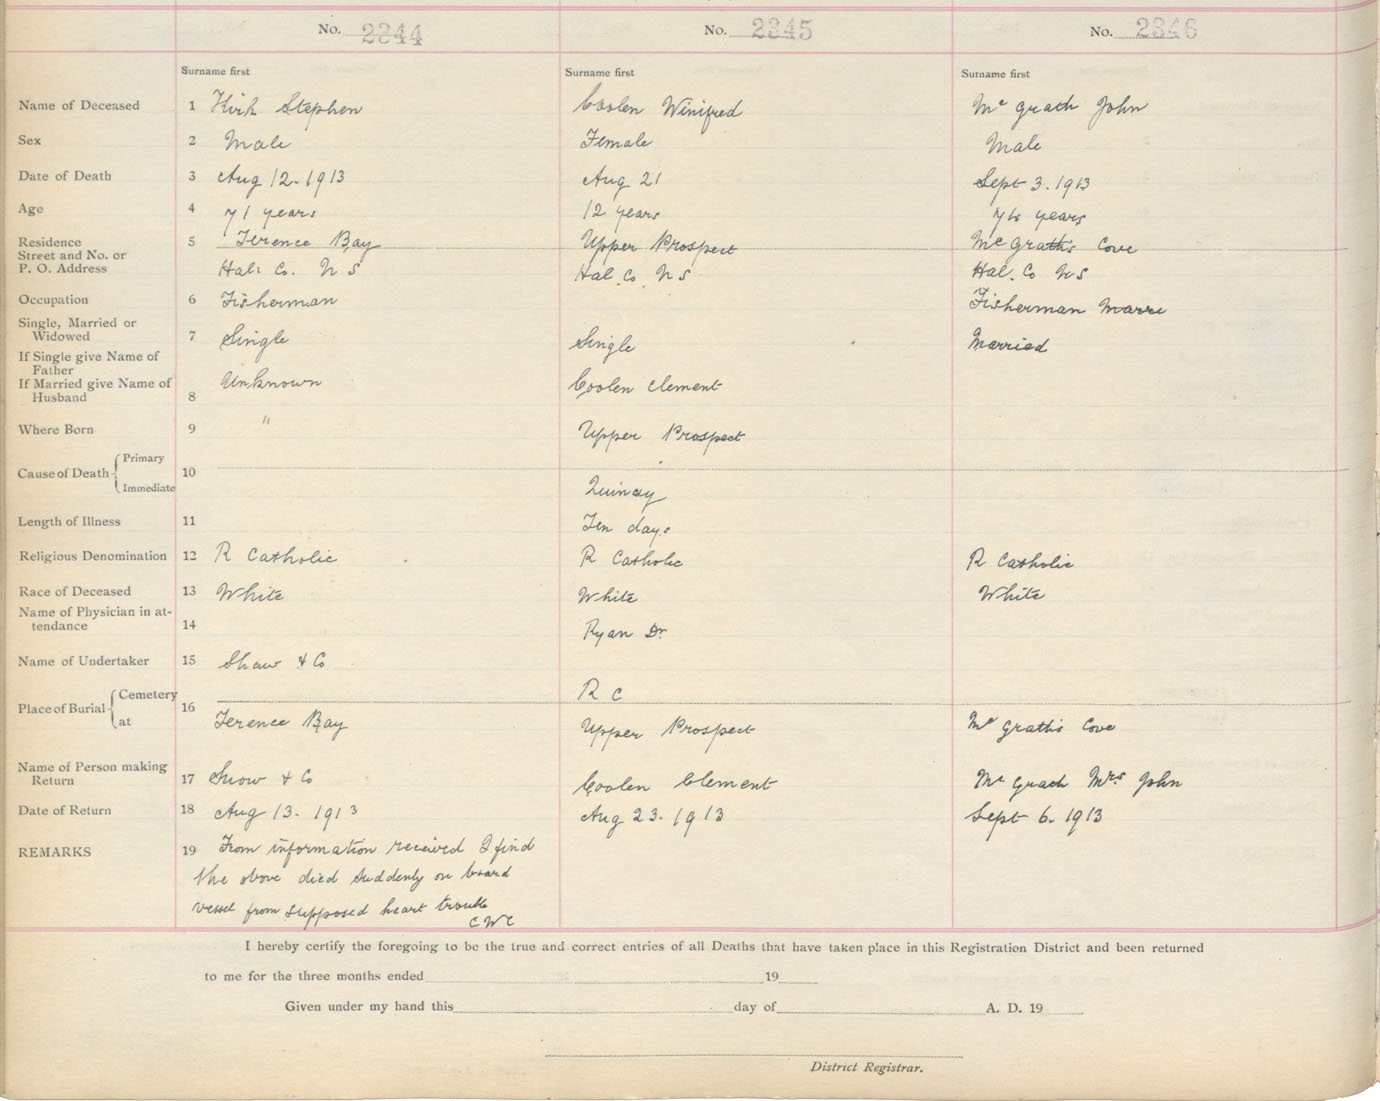 No. 2344 No. 2345 No. 2346
Surname first Surname first Surname first
Name of Deceased 1 Kirk Stephen Coolen Winifred Mc Grath John
Sex 2 Male Female Male
Date of Death 3 Aug 12-1913 Aug 21 Sept 3. 1913
Age 4 71 years 12 years years
Residence 5 Terence Bay Upper Prospect Mc Grath's Cove
Street and No. or
P. O. Address Hal: Co. N S Hal. Co. N S Hal. Co N S
Occupation 6 Fisherman Fisherman Marri
Single, Married or
Widowed 7 Single Single Married
If Single give Name of
Father
If Married give Name of Unknown Coolen Clement
Husband 8
Where Born 9 " Upper Prospect
Cause of Death Primary 10
Immediate Quincy
Length of Illness 11 Ten days
Religious Denomination 12 R Catholic R Catholic R Catholic
Race of Deceased 13 White White White
Name of Physician in at-
tendance 14 Ryan Dr.
Name of Undertaker 15 & Co
Place of Burial Cemetery 16 R C
at Terence Bay Upper Prospect Mc Grath's Cove
Name of Person making
Return 17 Snow & Co Coolen Clement Mc Grath Mrs. John
Date of Return 18 Aug 13. 1913 Aug 23. 1913 Sept 6. 1913
REMARKS 19 From information received I find
the above died suddenly on board
vessel from supposed heart trouble
C W C
I hereby certify the foregoing to be the true and correct entries of all Deaths that have taken place in this Registration District and been returned
to me for the three months ended 19
Given under my hand this day of A. D. 19
District Registrar.